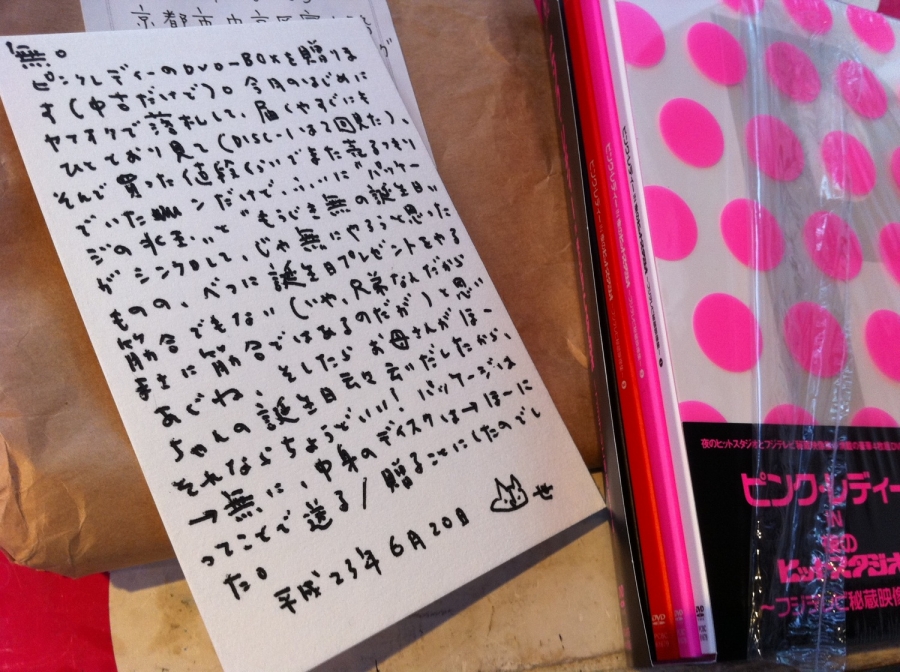 京都市中京区
無。
ピンクレディーのDVD-BOXを贈りま
す(中古だけど)。今月のはじめに
ヤフオクで落札して、届くやすぐにも
ひととおり見て(DISC-1は2回見た)、
そんで買った値段くらいでまた売るつもり
でいた ンだけど、ふいに“パッケー
ジの水玉”と“もうじき無の誕生日”
がシンクロして、じゃ無にやろうと思った
ものの、べつに誕生日プレゼントをやる
筋合でもない(いや、兄弟なんだから
まさに筋合ではあるのだが)と思い
あぐね、そしたらお母さんがほー
ちゃんの誕生日云々云いだしたから、
それならちょうどいい!パッケージは
→無に、中身のディスクは→ほーに
ってことで送る/贈ることにしたのでし
た。
平成23年6月20日 世
夜のヒットスタジオとフジテレビ
ピンク・レディー
IN
夜の
ヒットスタジオ
~フジテレビ秘蔵映像
DVD